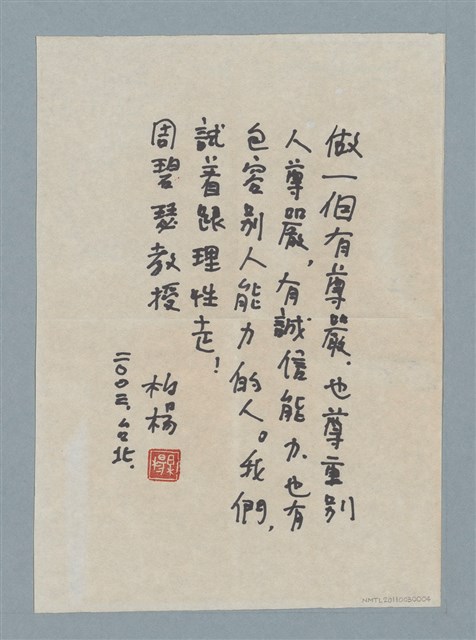 做一個有尊嚴、也尊重别
人尊嚴，有誠信能力、也有
包容别人能力的人。我們，
試着跟理性走！
周碧瑟教授
柏楊
二〇〇三、台北、
NMTL23110030004